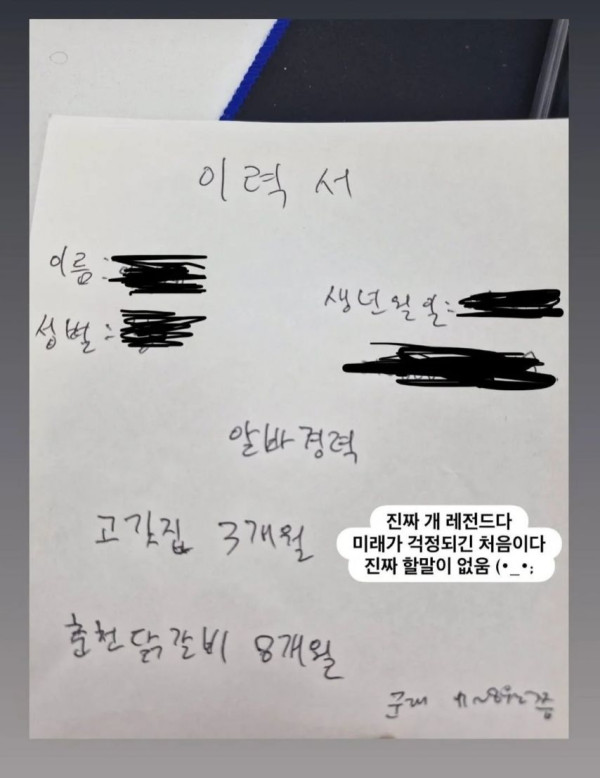 이력서
이름:
생년월일:
성별:
알바경력
고깃집 3개월
진짜 개 레전드다
미래가 걱정되긴 처음이다
진짜 할말이 없음 (•_•;
춘천닭갈비 8개월
군대